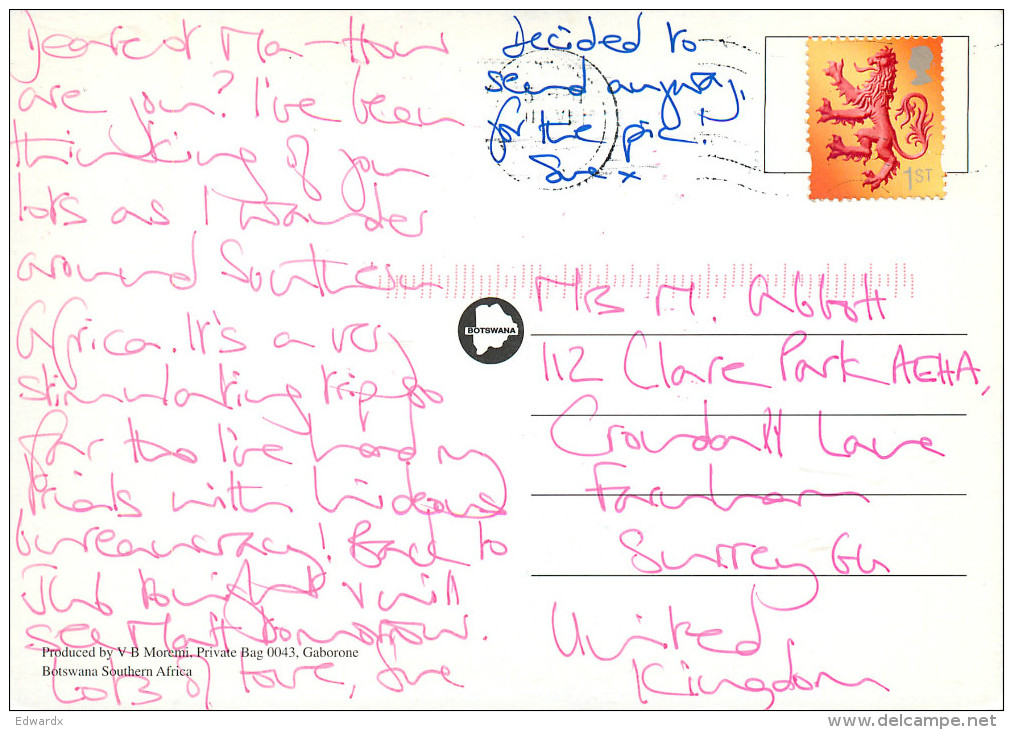 Dearest Ma - How
are you? I've been
thinking of you
lots as I wander
around Southern
Africa. It's a very
stimulating trip so
far tho I've had my
trials with hideous
bureaucracy! Back to
Jhb tonight & will
see Matt tomorrow.
Lots of love, Sue
Decided to
send anyway,
for the pic!
Sue x
1ST
BOTSWANA
MRS M. Abbott
112 Clare Park AEHA,
Crondall Lane
Farnham
Surrey GU
United
Kingdom
Produced by V B Moremi, Private Bag 0043, Gaborone
Botswana Southern Africa
Edwardx
www.delcampe.net